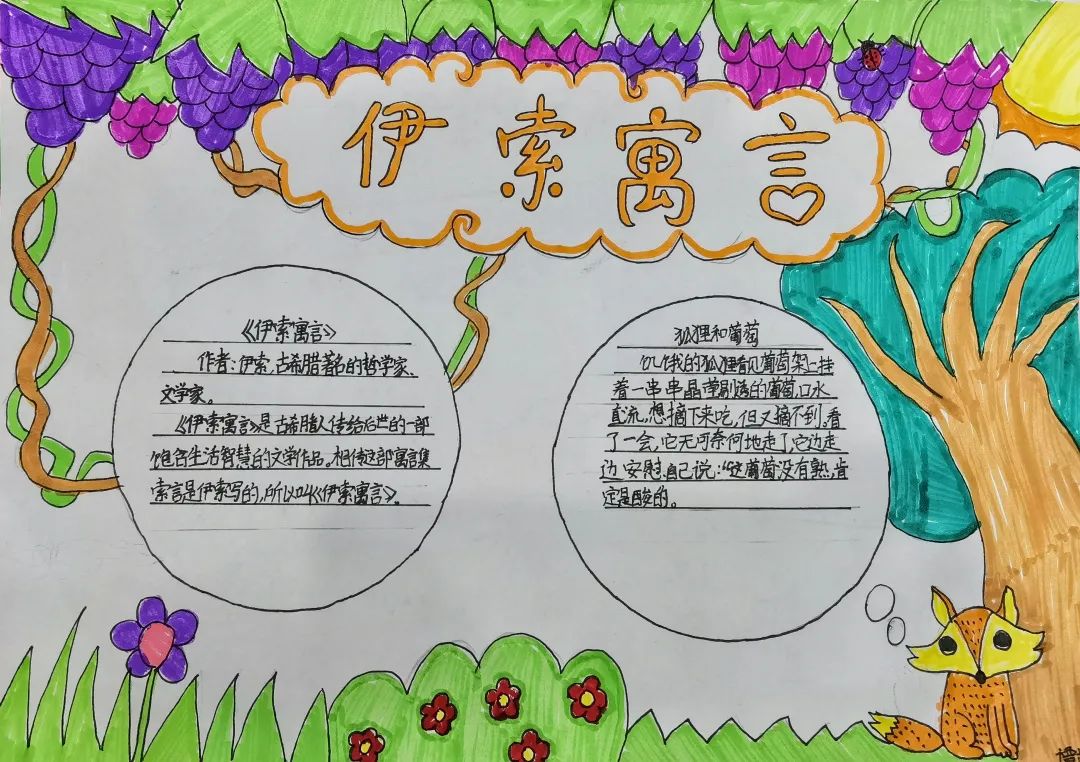 伊索寓言
《伊索寓言》
作者:伊索,古希腊著名的哲学家、
文学家。
《伊索寓言》是古希腊人传给后世的一部
饱含生活智慧的文学作品。相传这部寓言集
索言是伊索写的,所以叫《伊索寓言》。
狐狸和葡萄
饥饿的狐狸看见葡萄架上挂
着一串串晶莹剔透的葡萄,口水
直流,想摘下来吃,但又摘不到。看
了一会,它无可奈何地走了,它边走
边安慰自己说:“这葡萄没有熟,肯
定是酸的。